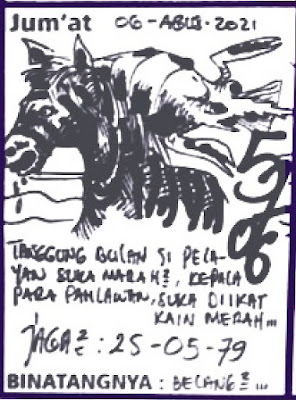 Jum'at 06-AGUS-2021
5906
TANGGUNG BULAN SI PELA-
YAN SUKA MARAH², KEPALA
PARA PAHLAWAN, SUKA DIIKAT
KAIN MERAH...
JAGA² : 25-05-79
BINATANGNYA : BELANG²...